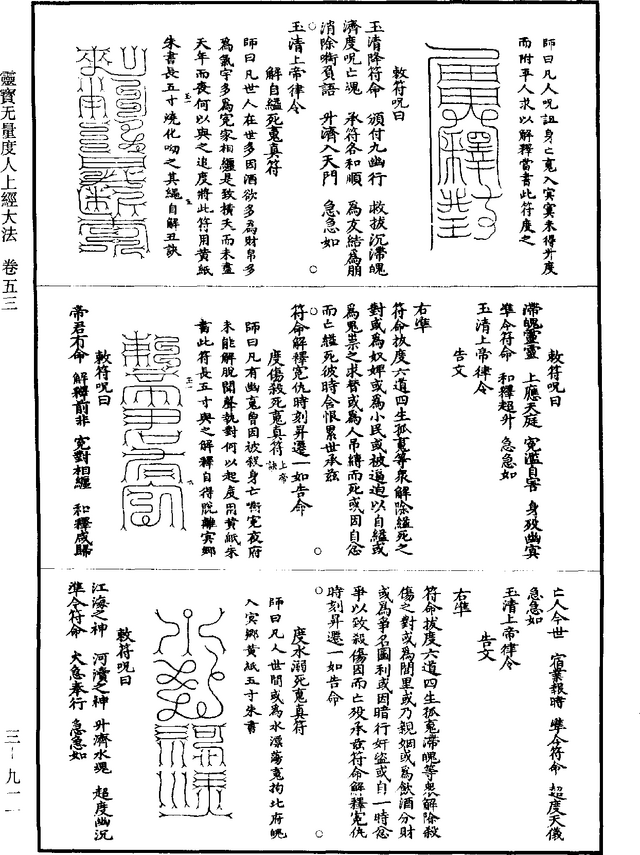 師曰凡人呪詛身亡䰟入㝠㝠未得升度
而附乎人求以解釋當書此符度之
敕符呪曰
玉清降符命　頒付九幽行　救拔沉滯魄
濟度呪亡䰟　承符各和順　為友結為朋
消除嘶負語　升濟入天門　急急如
玉清上帝律令
解自縊死䰟真符
師曰凡世人在世多因酒欲多為財帛多
為氣宇多為𡨚家相纏是致橫夭而未盡
天年而喪何以與之追度將此符用黄紙
朱書長五寸燒化呦之其繩自解丑訣
敕符呪曰
滯魄靈靈　上應天庭　𡨚濫自害　身歿幽㝠
準令符命　和釋超升　急急如
玉清上帝律令
告文
右準
符命拔度六道四生孤䰟等衆解除縊死之
對或為奴婢或為小民或被逼迫以自縊或
為鬼祟之求督或為人吊縛而死或因自忿
而亡縊死彼時含恨累世承茲
符命解釋𡨚仇時刻昇遷一如告命
度傷殺死䰟真符上帝訣
師曰凡有幽䰟曾因被殺身亡嘶𡨚夜府
未能解脱聞聲執對何以起度用黄紙朱
書此符長五寸與之解釋自得脱離㝠鄉
敕符呪曰
帝君有命　解釋前非　𡨚對相纏　和釋咸歸
亡人今世　宿業報時　準令符命　超度天儀
急急如
玉清上帝律令
告文
右準
符命拔度六道四生孤䰟滯魄等衆解除殺
傷之對或為閭里或乃親姻或為飲酒分財
或為爭名圖利或因暗行奸盜或自一時忿
爭以致殺傷因而亡歿承茲符命解釋𡨚仇
時刻昇遷一如告命
度水溺死䰟真符
師曰凡人世間或為水漂蕩䰟拘北府魄
入㝠鄉黄紙五寸朱書
敕符呪曰
江海之神　河瀆之神　升濟水䰟　超度幽沉
準令符命　火急奉行　急急如
靈寶无量度人上經大法　卷五三
三－九一一